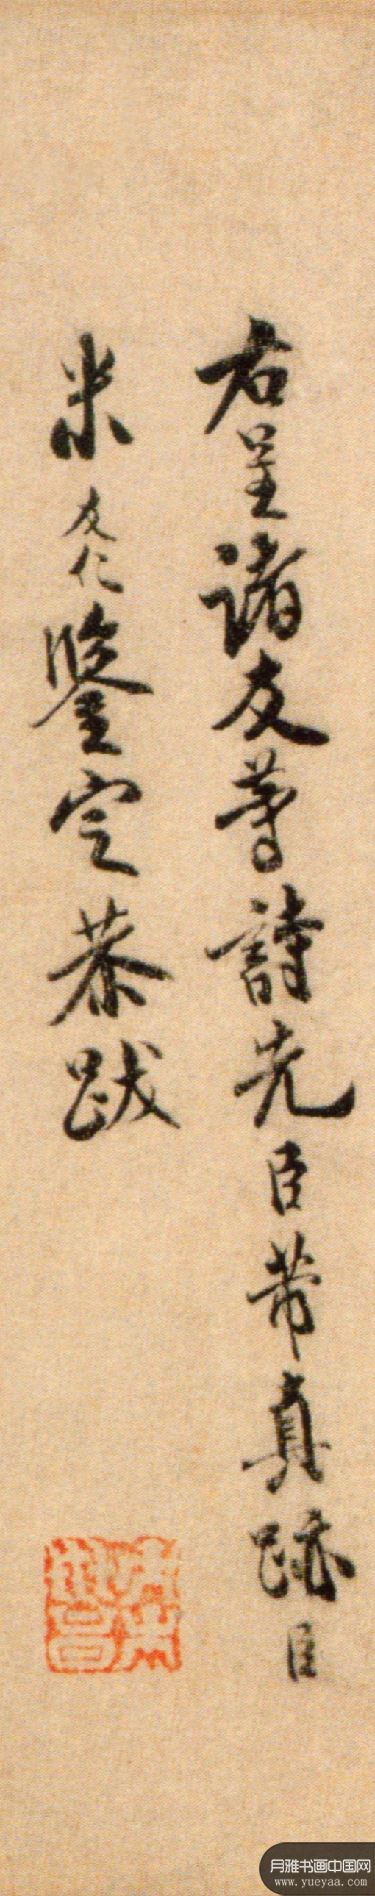 右呈诸友等詩先臣芾真跡臣
米友仁鑒定恭跋
月雅书画中国网
www.yueyaa.com